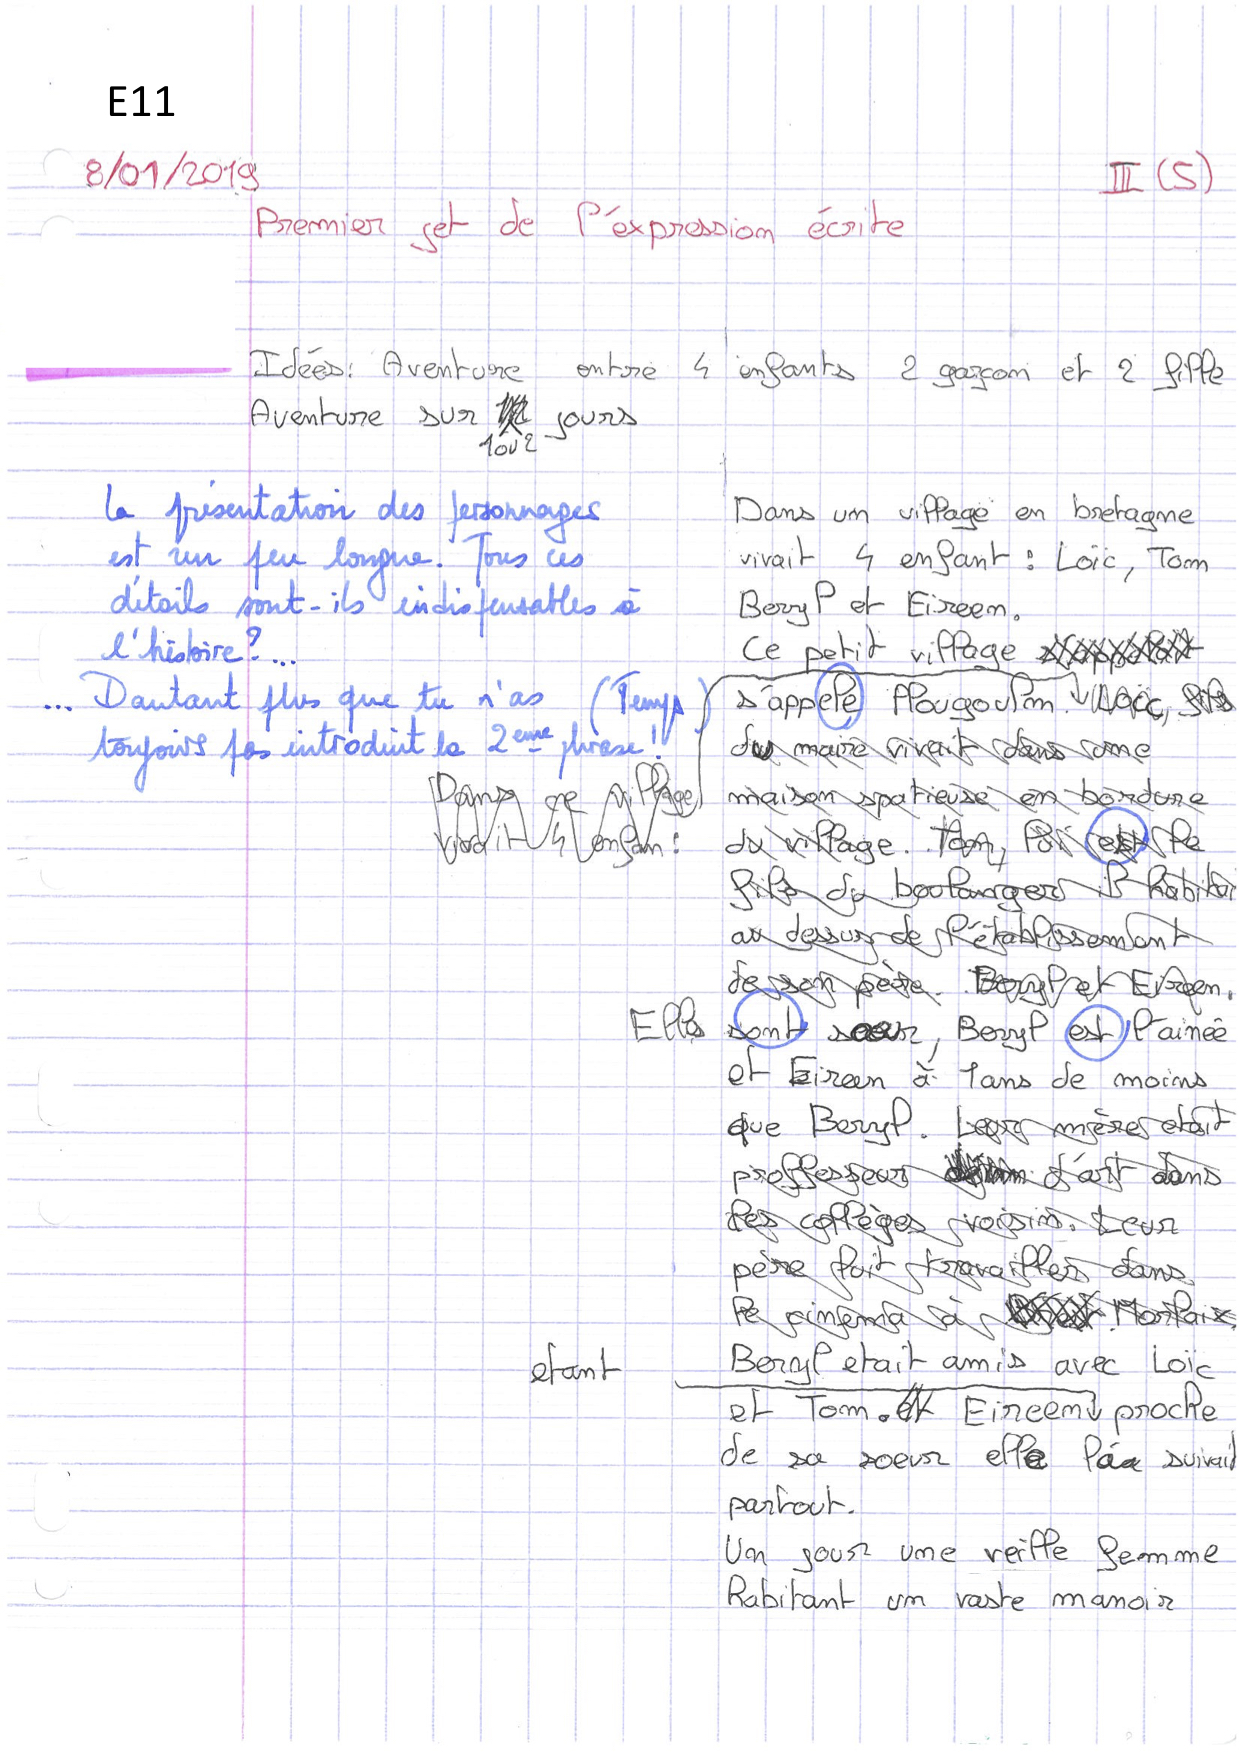 E11
8/01/2019
III (S)
Premier jet de l'éxpression écrite
Idées: Aventure entre 4 enfants 2 garçon et 2 fille
Aventure sur jours
1ou2
La présentation des personnages
est un peu longue. Tous ces
détails sont-ils indispensables à
l'histoire?...
... Dautant plus que tu n'as
toujours pas introduit la 2eme phrase!
(Temps)
Dans ce village
vivait 4 enfan:
Dans un village en bretagne
vivait 4 enfant : Loïc, Tom
Beryl et Eireen.
Ce petit village
s'appèlé Plougoulm. Loïc, fils
du maire vivait dans une
maison spatieuse en bordure
du village. Tom, lui est le
fils du boulanger il habitai
au dessus de l'établissemant
de son père. Beryl et Eireen.
Elles sont soeur, Beryl est l'ainée
et Eireen à 1ans de moins
que Beryl. Leur mères etait
proffesseur d'art dans
les collèges voisin. Leur
père lait travailler dans
le cinéma à Morlaix
Beryl etait amis avec Loïc
etant
et Tom. Eireen proche
de sa soeur elle la suivait
partout.
Un jour une veille femme
habitant un vaste manoir